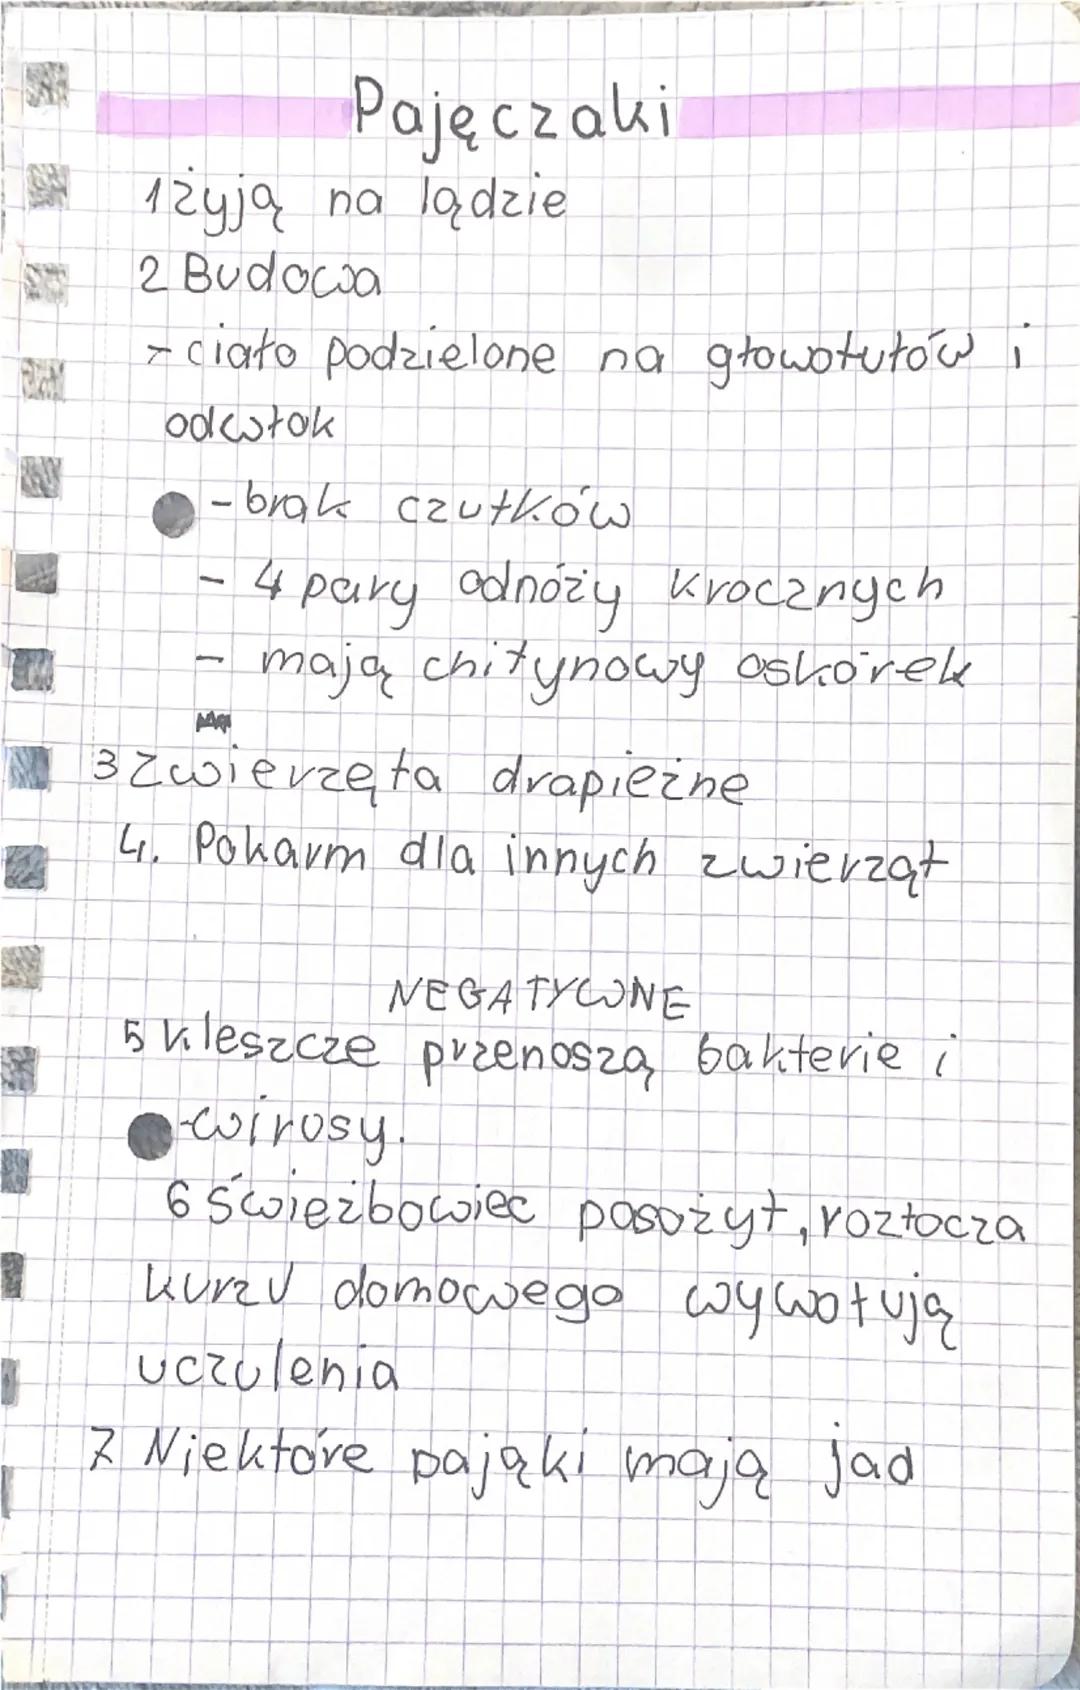 Pajęczaki
1 żyją na lądzie
2 Budowa
- ciało podzielone na głowotułów i
odwłok
- brak czułków
- 4 pary odnóży krocznych
- mają chitynowy oskórek
3 Zwierzęta drapieżne
4. Pokarm dla innych zwierząt
NEGATYWNE
5 kleszcze przenoszą bakterie i
- wirosy.
6 Świeżbowiec posożyt, roztocza
kurzu domowego wywołują
uczulenia
7 Niektóre pająki mają jad